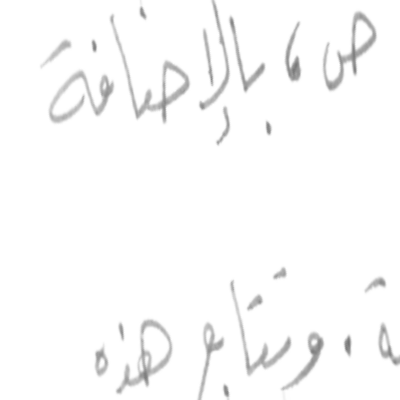 ص ، بالإضافة
ة . وتتابع هذه